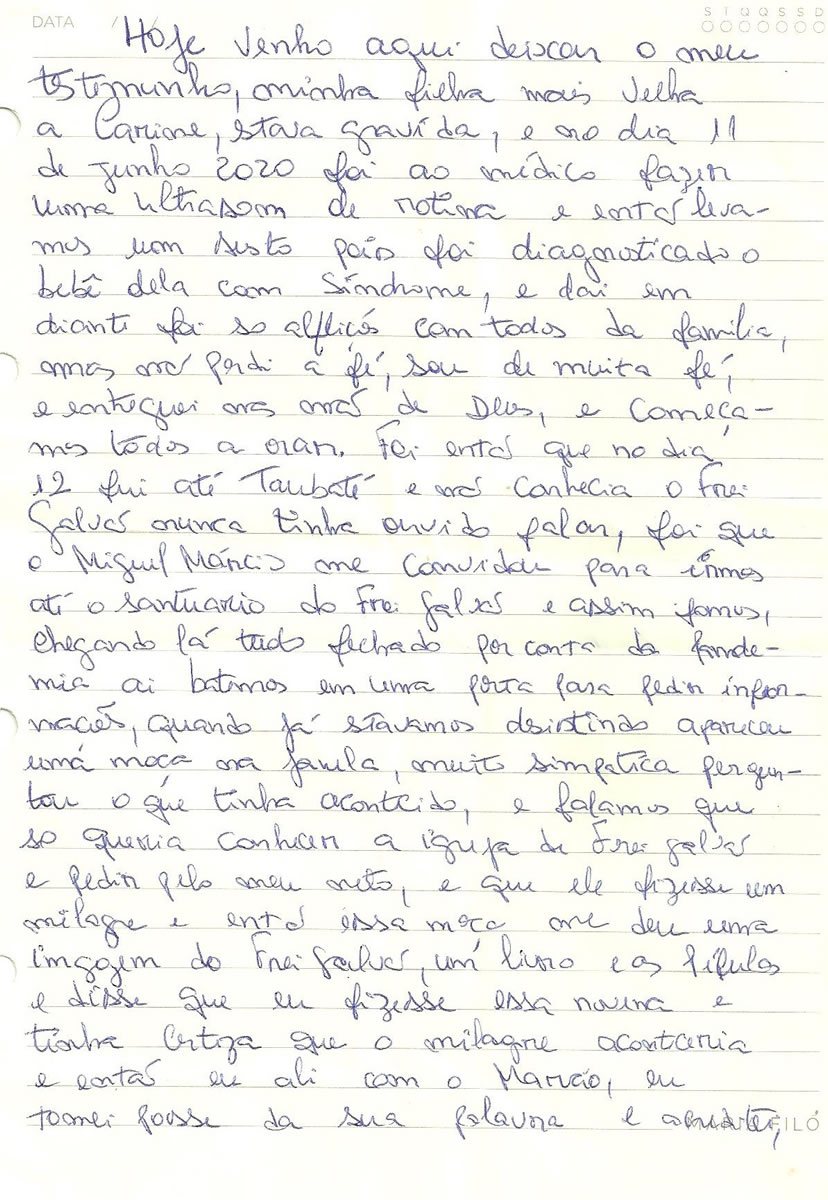 DATA / /
S T Q Q S S D
Hoje venho aqui deixar o meu
testemunho, minha filha mais velha
a Carione, stava gravída, e no dia 11
de junho 2020 foi ao médico fazer
uma ultrasom de rotina e entás leva-
mos um susto pois foi diagnosticado o
bebê dela com Síndrome, e dai em
diante foi so aflições com todos da família,
mas nás perdi a fé, sou de muita fé,
e entreguei nas más de Deus, e começa-
mos todos a orar. Foi entás que no dia
12 fui até Taubaté e nás conhecia o Frei
Galvás nunca tinha ouvido falar, foi que
o Miguel Márcio me convidou para irmos
até o santuario do Frei Galvás e assim fomos,
chegando lá tudo fechado por conta da pande-
mia ai batemos em uma porta para pedir infor-
mações, quando já stavamos desistindo apareceu
uma moça na janela, muito simpatica pergun-
tou o que tinha acontecido, e falamos que
so queria conhecer a igreja de Frei Galvás
e pedir pelo meu neto, e que ele fizesse um
milagre e entás essa moça me deu uma
imagem do Frei Galvás, um livro e as Pífulas
e disse que eu fizesse essa novena e
tinha certeza que o milagre aconteceria
e entás eu ali com o Marcio, eu
tomei posse da sua palavra e acreditei,
FILÓ